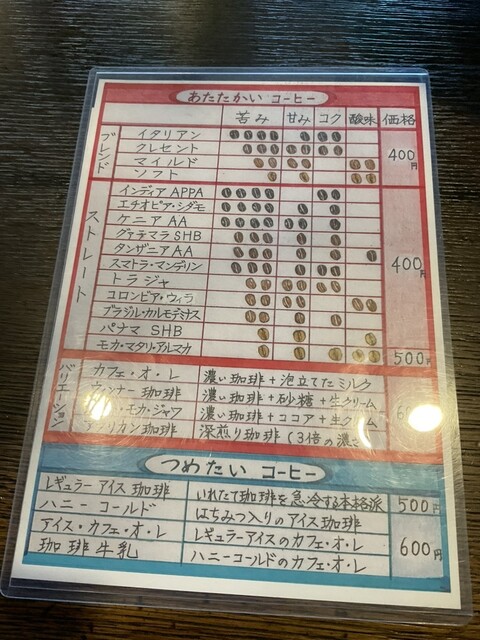 あたたかい コーヒー
苦み 甘み コク 酸味 価格
ブレンド
イタリアン
クレセント
マイルド
ソフト
400円
ストレート
インディア APPA
エチオピア・シダモ
ケニア AA
グァテマラ SHB
タンザニア AA
スマトラ・マンデリン
トラジャ
コロンビア・ウィラ
ブラジル・カルモデナス
パナマ SHB
400円
モカ・マタリ・アルマカ 500円
バリエーション
カフェ・オ・レ 濃い珈琲+泡立てたミルク
ウィンナー 珈琲 濃い珈琲+砂糖+生クリーム
モカ・ジャワ 濃い珈琲+ココア+生クリーム
珈琲 深煎り珈琲(3倍の濃さ
つめたい コーヒー
レギュラーアイス珈琲 いれたて珈琲を急冷する本格派 500円
ハニーコールド はちみつ入りのアイス珈琲
アイス・カフェ・オ・レ レギュラーアイスのカフェ・オ・レ 600円
珈琲牛乳 ハニーコールドのカフェ・オ・レ